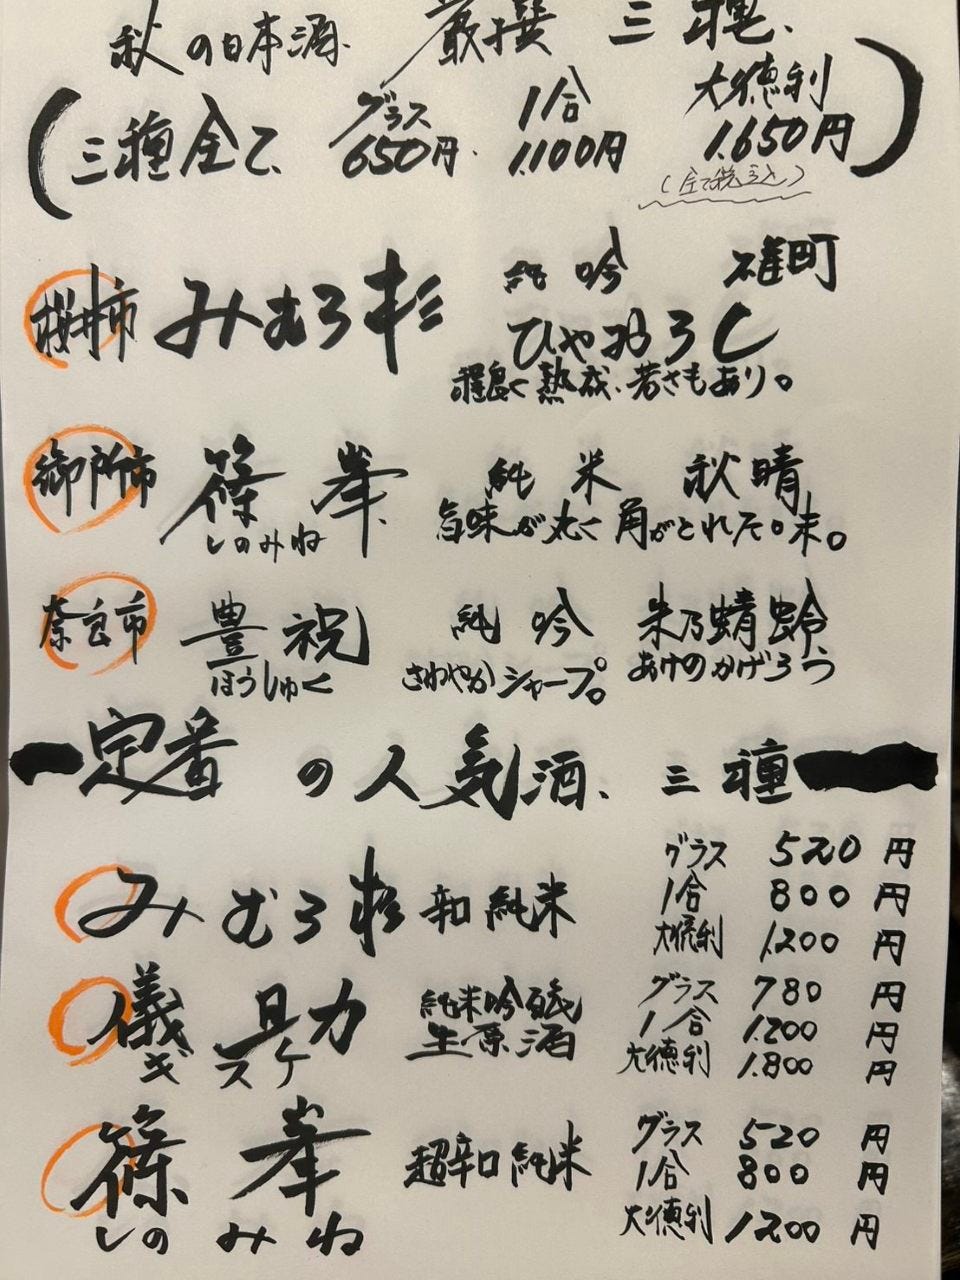 秋の日本酒、厳撰 三種、
(三種全て、グラス 650円、1合 1,100円 大徳利 1,650円)
(全て税込)
桜井市 みむろ杉 純吟 雄町
ひやおろし
程良く熟成、若さもあり。
御所市 篠峯 しのみね 純米 秋晴
旨味が丸く角がとれた味。
奈良市 豊祝 ほうしゅく 純吟 朱乃蜻蛉 あけのかげろう
さわやかシャープ。
定番の人気酒、三種
みむろ杉 辛口純米 グラス 520円
1合 800円
大徳利 1,200円
儀助 ギスケ 純米吟醸 生原酒 グラス 780円
1合 1,200円
大徳利 1,800円
篠峯 しのみね 超辛口純米 グラス 520円
1合 800円
大徳利 1,200円